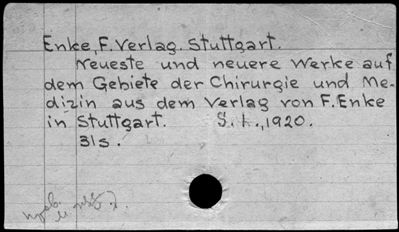 Enke, F. Verlag. Stuttgart.
Neueste und neuere Werke auf
dem Gebiete der Chirurgie und Me-
dizin aus dem Verlag von F. Enke
in Stuttgart. S. l., 1920.
31 s.